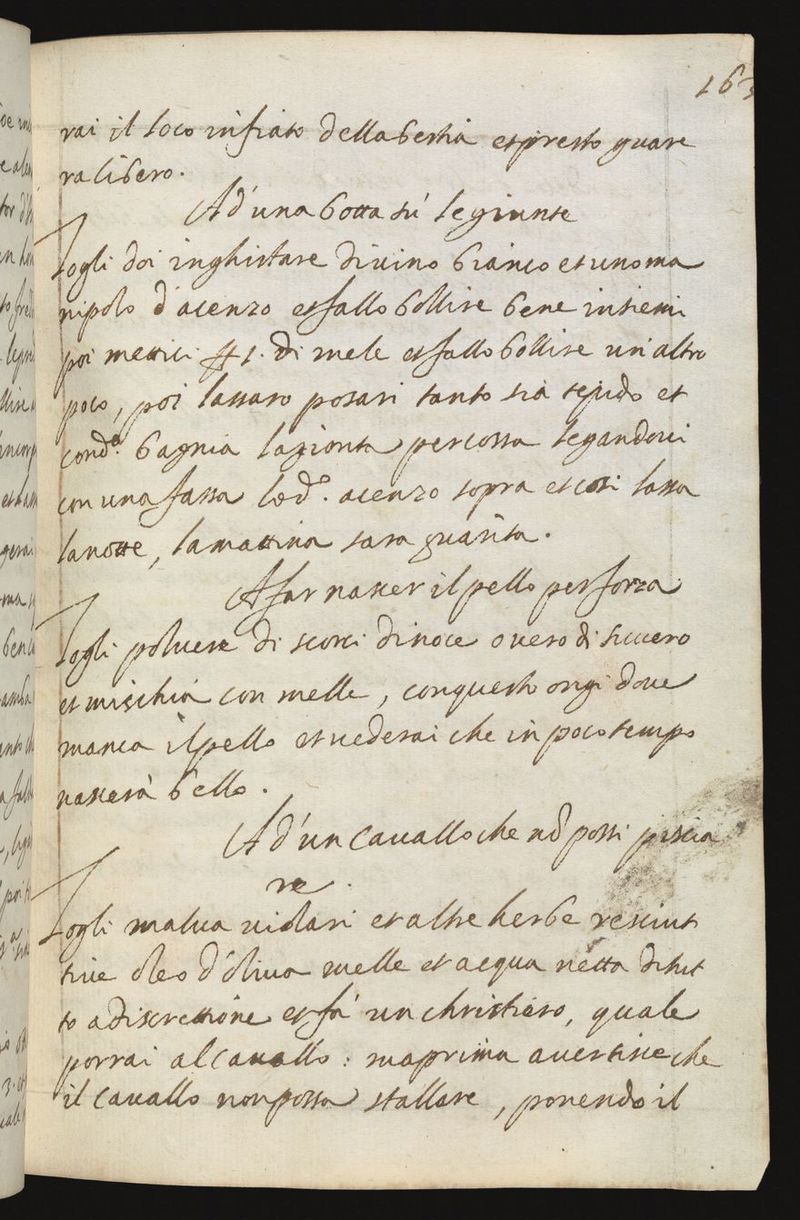 163
rai il loco infiato della bestia et presto guare
ra libero.
Ad'una botta sú le giunte
Togli doi inghistare di vino bianco et uno ma
nipolo d'acenzo et fallo bollire bene insiemi
poi mettici 1. di mele et fallo bollire un'altro
poco, poi lassaro posari tanto sia tepido et
cond.º bagnia la gionta percossa legandovi
con una fassa lod.º acenzo sopra et cosi lassa
la notte, la mattina sara guarita.
A far nascer il pello per forza
Togli polvere di scorci di noce overo di sicuero
et mischia con melle, con questo ongi dove
manca il pello et vederai che in poco tempo
nascerà bello.
Ad'un Cavallo che nō possi piscia
re.
Togli malva violari et altre herbe
tive oleo d'oliva melle et acqua netta di tut
to a discrettione et fá un christiero, quale
porrai al cavallo: ma prima avertisce che
il Cavallo non possa stallare, ponendo il